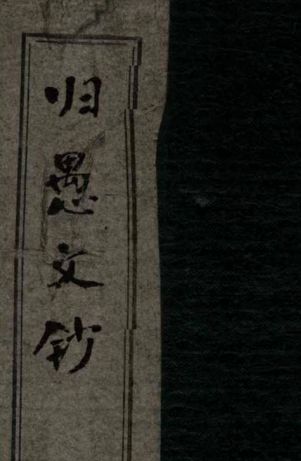 归愚文钞